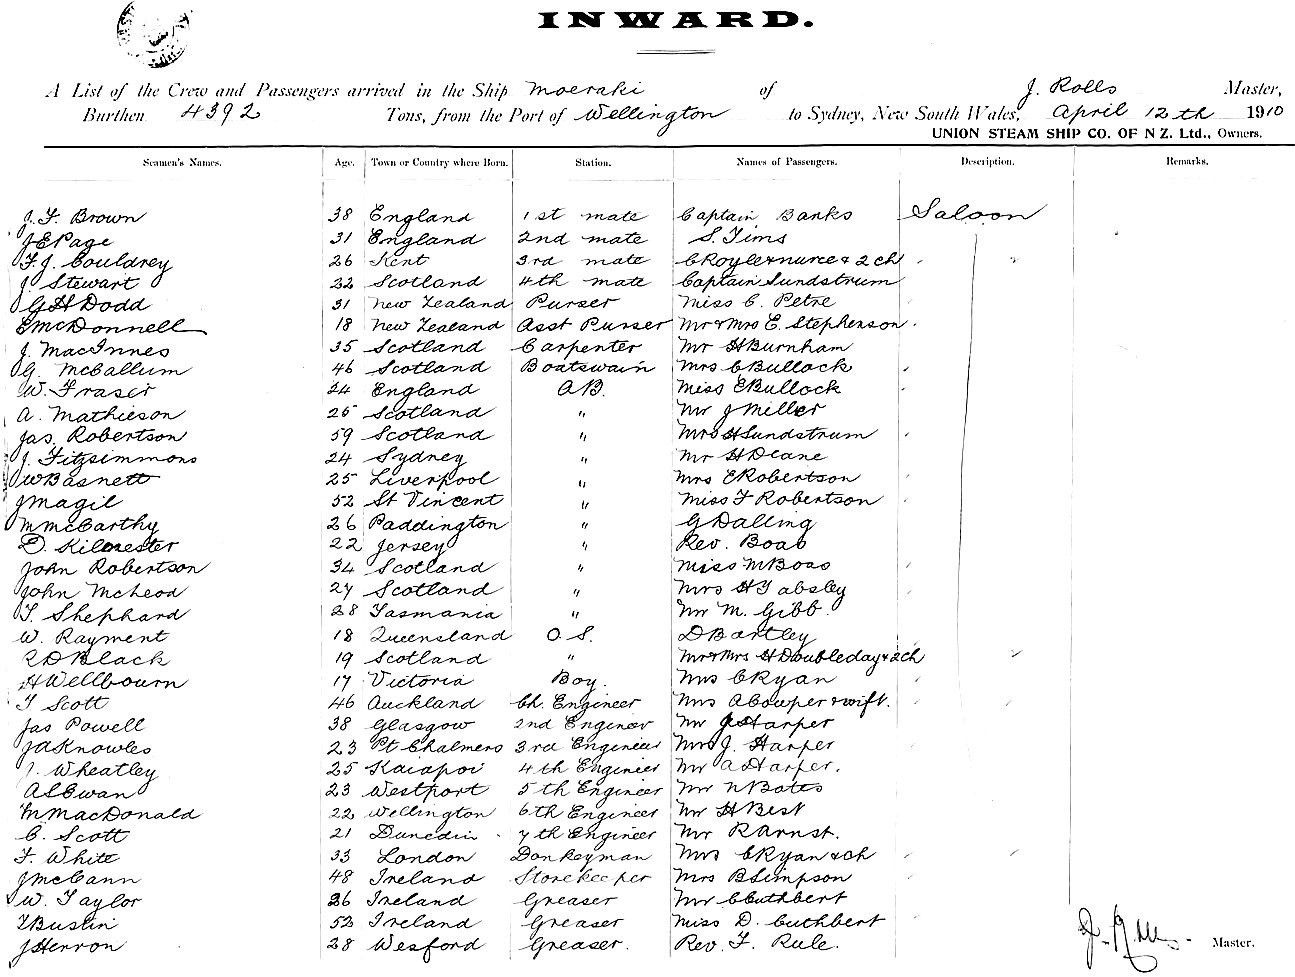 INWARD.
A List of the Crew and Passengers arrived in the Ship Moeraki of J. Rolls Master,
Burthen 4392 Tons, from the Port of Wellington to Sydney, New South Wales, April 12th 1910
UNION STEAM SHIP CO. OF N Z. Ltd., Owners.
Seamen's Names. Age. Town or Country where Born. Station. Names of Passengers. Description. Remarks.
J. F. Brown 38 England 1st mate Captain Banks Saloon
J E Page 31 England 2nd mate S. Tims
F. J. Couldrey 26 Kent 3rd mate C Royle & nurce & 2 ch
J. Stewart 22 Scotland 4th mate Captain Sundstrum
G H Dodd 31 New Zealand Purser Miss C. Petre
E McDonnell 18 New Zealand Asst Purser Mr & Mrs E. Stephenson
J. MacInnes 35 Scotland Carpenter Mr H Burnham
G. McCallum 46 Scotland Boatswain Mrs C Bullock
W. Fraser 24 England A B. Miss E Bullock
A. Mathieson 25 Scotland " Mr J Miller
Jas. Robertson 59 Scotland " Mrs H Sundstrum
J. Fitzsimmons 24 Sydney " Mr H Deane
W Basnett 25 Liverpool " Mrs E Robertson
J Magil 52 St Vincent " Miss F Robertson
M McCarthy 26 Paddington " G Dalling
D. 22 Jersey " Rev. Boas
John Robertson 34 Scotland " Miss M Boas
John McLeod 27 Scotland " Mrs H Tabsley
T. Shephard 28 Tasmania " Mr M. Gibb.
W. Rayment 18 Queensland O. S. D Bartley
R D Black 19 Scotland " Mr & Mrs H Doubleday & 2 ch
H Wellbourn 17 Victoria Boy. Mrs C Ryan
T Scott 46 Auckland Ch. Engineer Mrs A Cowper & wift.
Jas Powell 38 Glasgow 2nd Engineer Mr J Harper
J A Knowles 23 Pt Chalmers 3rd Engineer Mrs J. Harper
J. Wheatley 25 Kaiapoi 4th Engineer Mr A Harper.
A L Ewan 23 Westport 5th Engineer Mr N Bates
M MacDonald 22 Wellington 6th Engineer Mr H Best
C. Scott 21 Dunedin 7th Engineer Mr R Arnst.
F. White 33 London Donkeyman Mrs C Ryan & ch
J McCann 48 Ireland Storekeeper Mrs B Simpson
W. Taylor 26 Ireland Greaser Mr C Cuthbert
T Bustin 52 Ireland Greaser Miss D. Cuthbert
J Herron 28 Wesford Greaser. Rev. F. Rule.
J. Rolls. Master.